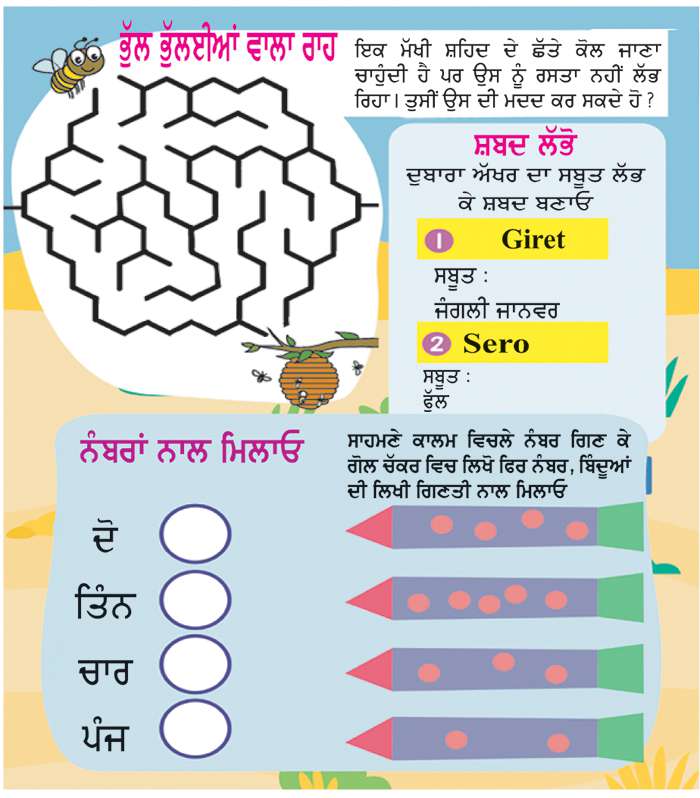 ਭੁੱਲ ਭੁੱਲਈਆਂ ਵਾਲਾ ਰਾਹ
ਇਕ ਮੱਖੀ ਸ਼ਹਿਦ ਦੇ ਛੱਤੇ ਕੋਲ ਜਾਣਾ
ਚਾਹੁੰਦੀ ਹੈ ਪਰ ਉਸ ਨੂੰ ਰਸਤਾ ਨਹੀਂ ਲੱਭ
ਰਿਹਾ। ਤੁਸੀਂ ਉਸ ਦੀ ਮਦਦ ਕਰ ਸਕਦੇ ਹੋ ?
ਸ਼ਬਦ ਲੱਭੋ
ਦੁਬਾਰਾ ਅੱਖਰ ਦਾ ਸਬੂਤ ਲੱਭ
ਕੇ ਸ਼ਬਦ ਬਣਾਓ
1 Giret
ਸਬੂਤ :
ਜੰਗਲੀ ਜਾਨਵਰ
2 Sero
ਸਬੂਤ :
ਫੁੱਲ
ਨੰਬਰਾਂ ਨਾਲ ਮਿਲਾਓ
ਸਾਹਮਣੇ ਕਾਲਮ ਵਿਚਲੇ ਨੰਬਰ ਗਿਣ ਕੇ
ਗੋਲ ਚੱਕਰ ਵਿਚ ਲਿਖੋ ਫਿਰ ਨੰਬਰ, ਬਿੰਦੂਆਂ
ਦੀ ਲਿਖੀ ਗਿਣਤੀ ਨਾਲ ਮਿਲਾਓ
ਦੋ
ਤਿੰਨ
ਚਾਰ
ਪੰਜ